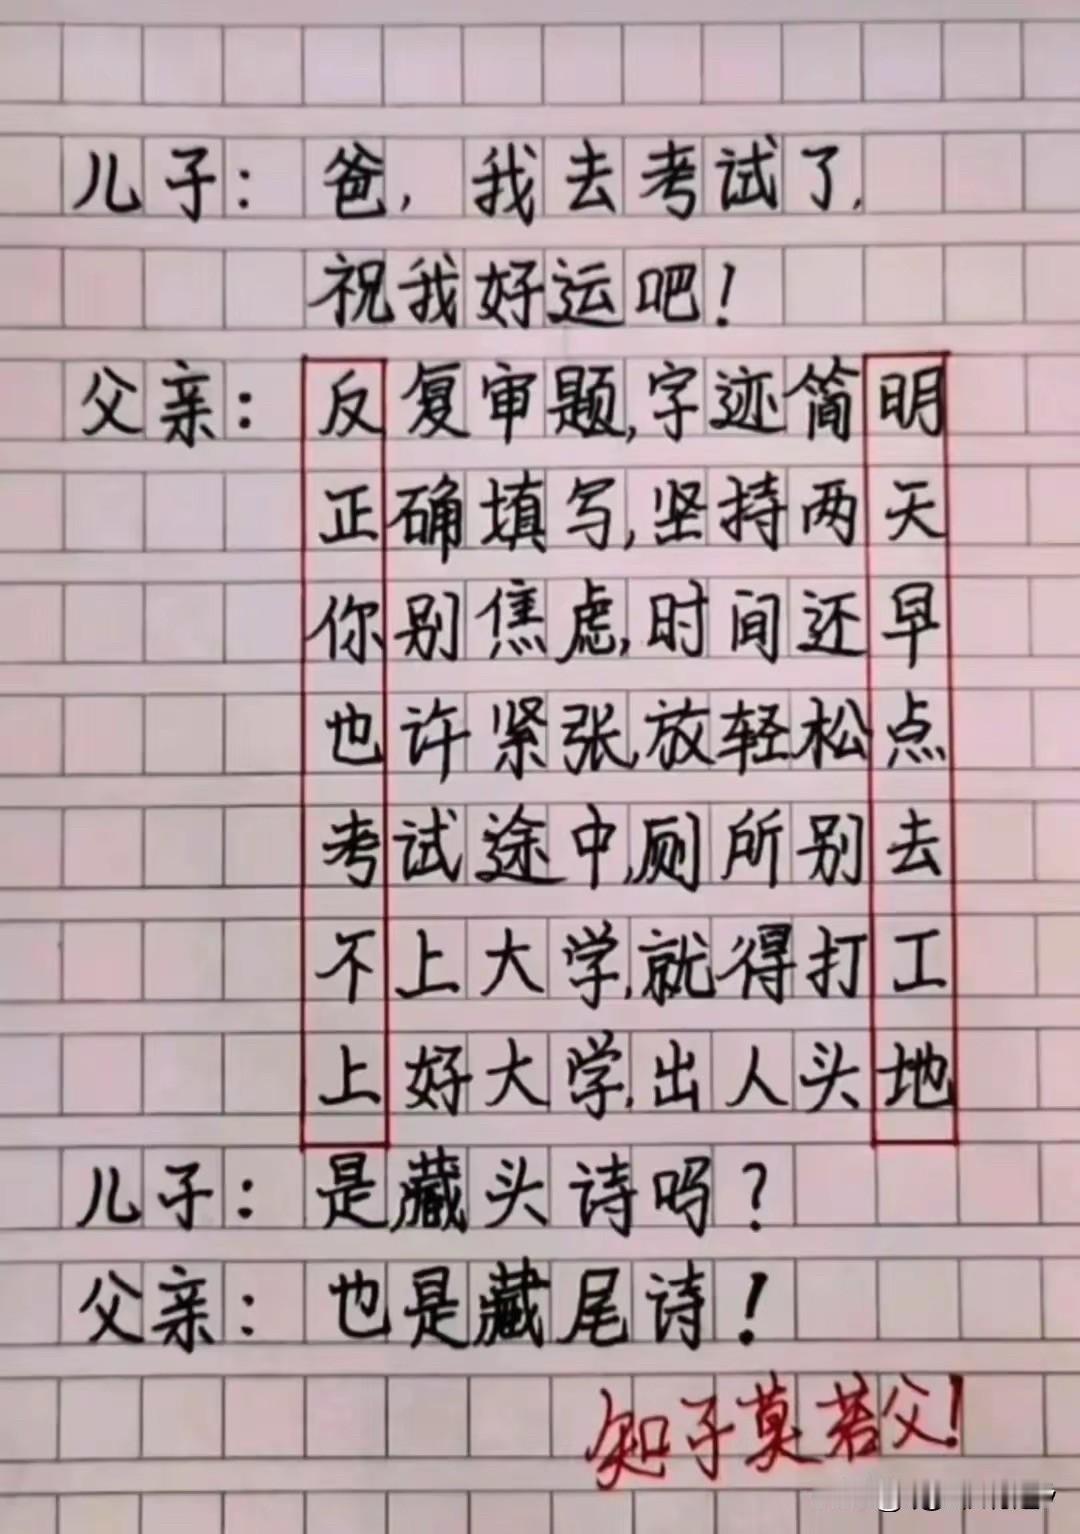 儿子：爸，我去考试了，
祝我好运吧！
父亲：反复审题，字迹简明
正确填写，坚持两天
你别焦虑，时间还早
也许紧张，放轻松点
考试途中，厕所别去
不上大学，就得打工
上好大学，出人头地
儿子：是藏头诗吗？
父亲：也是藏尾诗！
知子莫若父！